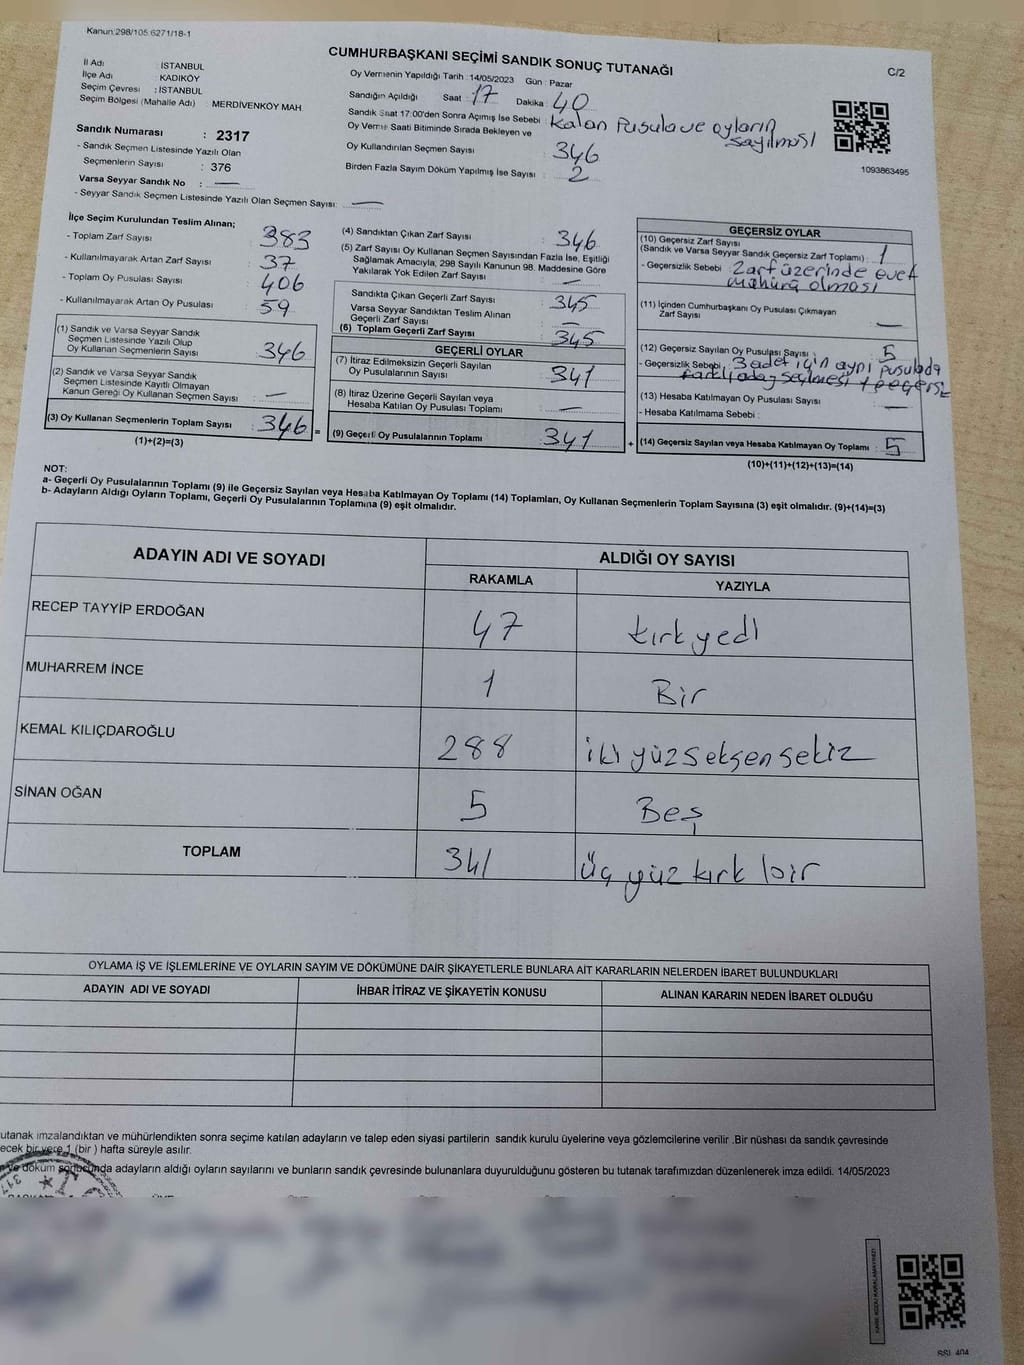 Kanun:298/105.6271/18-1
CUMHURBAŞKANI SEÇİMİ SANDIK SONUÇ TUTANAĞI
C/2
İl Adı : İSTANBUL
İlçe Adı : KADIKÖY
Seçim Çevresi : İSTANBUL
Seçim Bölgesi (Mahalle Adı) : MERDİVENKÖY MAH.
Sandık Numarası : 2317
- Sandık Seçmen Listesinde Yazılı Olan
Seçmenlerin Sayısı : 376
Varsa Seyyar Sandık No : —
- Seyyar Sandık Seçmen Listesinde Yazılı Olan Seçmen Sayısı: —
Oy Vermenin Yapıldığı Tarih :14/05/2023 Gün : Pazar
Sandığın Açıldığı Saat : 17 Dakika : 40
Sandık Saat 17:00'den Sonra Açımış İse Sebebi : Kalan Pusula ve oyların
Oy Verme Saati Bitiminde Sırada Bekleyen ve sayılması
Oy Kullandırılan Seçmen Sayısı : 346
Birden Fazla Sayım Döküm Yapılmış İse Sayısı : 2
1093863495
İlçe Seçim Kurulundan Teslim Alınan;
- Toplam Zarf Sayısı : 383
- Kullanılmayarak Artan Zarf Sayısı : 37
- Toplam Oy Pusulası Sayısı : 406
- Kullanılmayarak Artan Oy Pusulası : 59
(1) Sandık ve Varsa Seyyar Sandık
Seçmen Listesinde Yazılı Olup
Oy Kullanan Seçmenlerin Sayısı : 346
(2) Sandık ve Varsa Seyyar Sandık
Seçmen Listesinde Kayıtlı Olmayan
Kanun Gereği Oy Kullanan Seçmen Sayısı : —
(3) Oy Kullanan Seçmenlerin Toplam Sayısı : 346 =
(1)+(2)=(3)
(4) Sandıktan Çıkan Zarf Sayısı : 346
(5) Zarf Sayısı Oy Kullanan Seçmen Sayısından Fazla İse, Eşitliği
Sağlamak Amacıyla, 298 Sayılı Kanunun 98. Maddesine Göre
Yakılarak Yok Edilen Zarf Sayısı : —
Sandıkta Çıkan Geçerli Zarf Sayısı : 345
Varsa Seyyar Sandıktan Teslim Alınan
Geçerli Zarf Sayısı : —
(6) Toplam Geçerli Zarf Sayısı : 345
GEÇERLİ OYLAR
(7) İtiraz Edilmeksizin Geçerli Sayılan
Oy Pusulalarının Sayısı : 341
(8) İtiraz Üzerine Geçerli Sayılan veya
Hesaba Katılan Oy Pusulası Toplamı : —
(9) Geçerli Oy Pusulalarının Toplamı : 341 +
GEÇERSİZ OYLAR
(10) Geçersiz Zarf Sayısı
(Sandık ve Varsa Seyyar Sandık Geçersiz Zarf Toplamı) : 1
- Geçersizlik Sebebi : Zarf üzerinde evet
mührü olması
(11) İçinden Cumhurbaşkanı Oy Pusulası Çıkmayan
Zarf Sayısı : —
(12) Geçersiz Sayılan Oy Pusulası Sayısı : 5
- Geçersizlik Sebebi : 3 adet için aynı pusulada
farklı aday seçilmesi
(13) Hesaba Katılmayan Oy Pusulası Sayısı : —
- Hesaba Katılmama Sebebi :
(14) Geçersiz Sayılan veya Hesaba Katılmayan Oy Toplamı : 5
(10)+(11)+(12)+(13)=(14)
NOT:
a- Geçerli Oy Pusulalarının Toplamı (9) ile Geçersiz Sayılan veya Hesaba Katılmayan Oy Toplamı (14) Toplamları, Oy Kullanan Seçmenlerin Toplam Sayısına (3) eşit olmalıdır. (9)+(14)=(3)
b- Adayların Aldığı Oyların Toplamı, Geçerli Oy Pusulalarının Toplamına (9) eşit olmalıdır.
ADAYIN ADI VE SOYADI
ALDIĞI OY SAYISI
RAKAMLA YAZIYLA
RECEP TAYYİP ERDOĞAN 47 kırkyedi
MUHARREM İNCE 1 Bir
KEMAL KILIÇDAROĞLU 288 iki yüz seksen sekiz
SİNAN OĞAN 5 Beş
TOPLAM 341 üç yüz kırk bir
OYLAMA İŞ VE İŞLEMLERİNE VE OYLARIN SAYIM VE DÖKÜMÜNE DAİR ŞİKAYETLERLE BUNLARA AİT KARARLARIN NELERDEN İBARET BULUNDUKLARI
ADAYIN ADI VE SOYADI İHBAR İTİRAZ VE ŞİKAYETİN KONUSU ALINAN KARARIN NEDEN İBARET OLDUĞU
utanak imzalandıktan ve mühürlendikten sonra seçime katılan adayların ve talep eden siyasi partilerin sandık kurulu üyelerine veya gözlemcilerine verilir .Bir nüshası da sandık çevresinde
ecek bir yere 1 (bir ) hafta süreyle asılır.
ve döküm sonucunda adayların aldığı oyların sayılarını ve bunların sandık çevresinde bulunanlara duyurulduğunu gösteren bu tutanak tarafımızdan düzenlenerek imza edildi. 14/05/2023